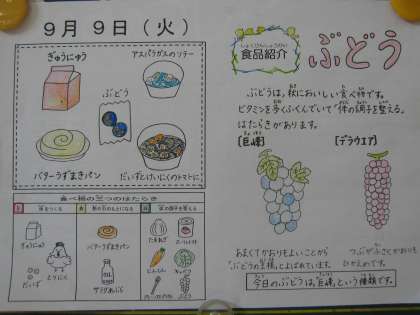 9月9日(火)
ぎゅうにゅう
アスパラガスのソテー
ぶどう
バターうずまきパン
だいずとけいにくのトマトに
食べ物の三つのはたらき
ぎゅうにゅう
だいず
とりにく
バターうずまきパン
サラダあぶら
たまねぎ
にんじん
キャベツ
ぶどう
しょくひんしょうかい
食品紹介
ぶどう
ぶどうは、秋においしい食べ物です。
ビタミンを多くふくんでいて、体の調子を整える、
はたらきがあります。
[巨峰]
[デラウエア]
あまくてかおりもよいことから
「ぶどうの王様」とよばれています。
つぶが小さくかおりも
ひかえめです。
今日のぶどうは、巨峰という種類です。